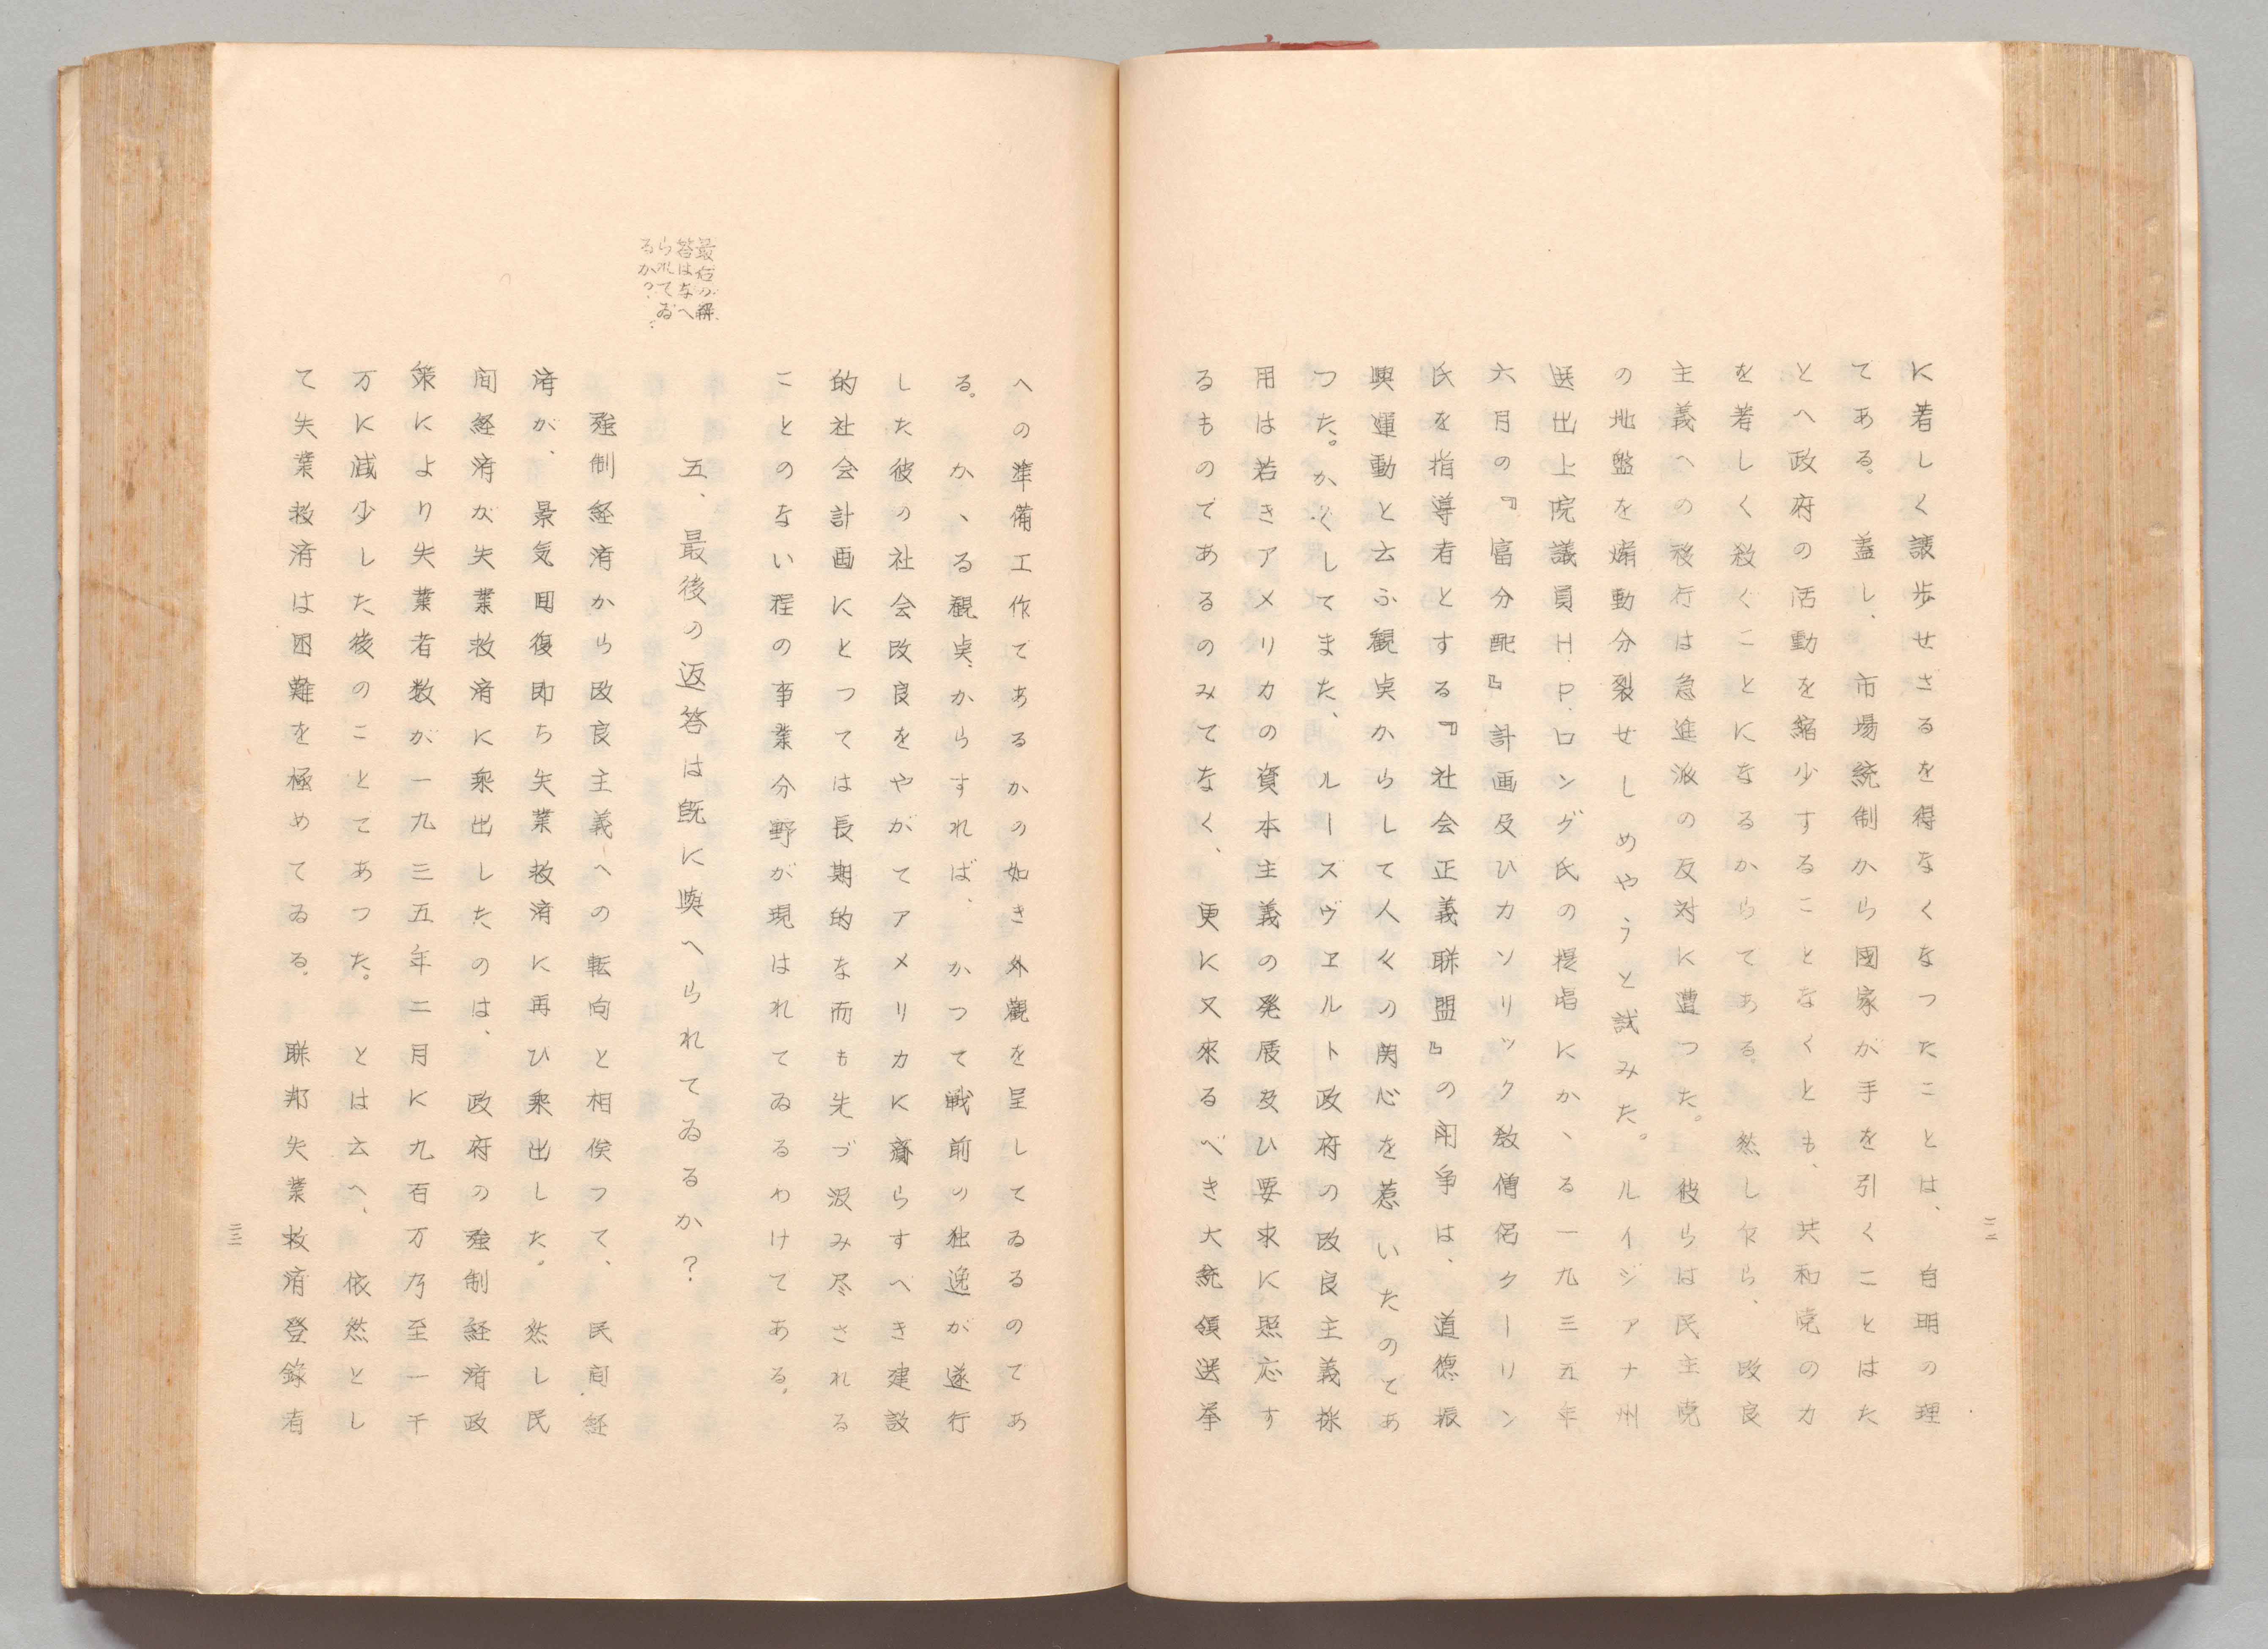 に著しく譲歩せざるを得なくなつたことは、自明の理
てある。蓋し、市場統制から國家が手を引くことはた
とへ政府の活動を縮少することなくとも、共和党の力
を著しく殺ぐことになるからてある。然し乍ら、改良
主義への移行は急進派の反対に遭つた。彼らは民主党
の地盤を煽動分裂せしめやうと試みた。ルイジアナ州
送出上院議員H.P.ロング氏の提唱にかゝる一九三五年
六月の『富分配』計画及ひカソリック教僧侶クーリン
氏を指導者とする『社会正義聯盟』の闘争は、道徳振
興運動と云ふ観点からして人々の関心を惹いたのてあ
つた。かくしてまた、ルーズヴェルト政府の改良主義採
用は若きアメリカの資本主義の発展及ひ要求に照応す
るものてあるのみてなく、更に又來るべき大統領送挙
三二
への準備工作てあるかの如き外觀を呈してゐるのてあ
る。かゝる観点からすれば、かつて戦前の独逸が遂行
した彼の社会改良をやがてアメリカに齎らすべき建設
的社会計画にとつては長期的な而も先づ汲み尽される
ことのない程の事業分野が現はれてゐるわけてある。
五、最後の返答は既に與へられてゐるか？
答は
られてゐ
るか？
强制経済から改良主義への転向と相俟つて、民间経
済が、景気回復即ち失業救済に再ひ乘出した。然し民
间経済が失業救済に乘出したのは、政府の强制経済政
策により失業者数が一九三五年二月に九百万乃至一千
万に減少した後のことてあつた。とは云へ、依然とし
て失業救済は困難を極めてゐる。聯邦失業救済登錄者
三三